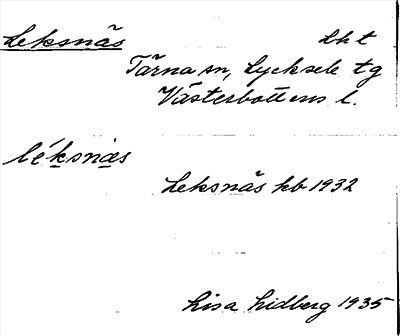 Leksnäs Lht
Tärna sn, Lycksele tg
Västerbottens l.
léksnäs
Leksnäs kb 1932
Lisa Lidberg 1935